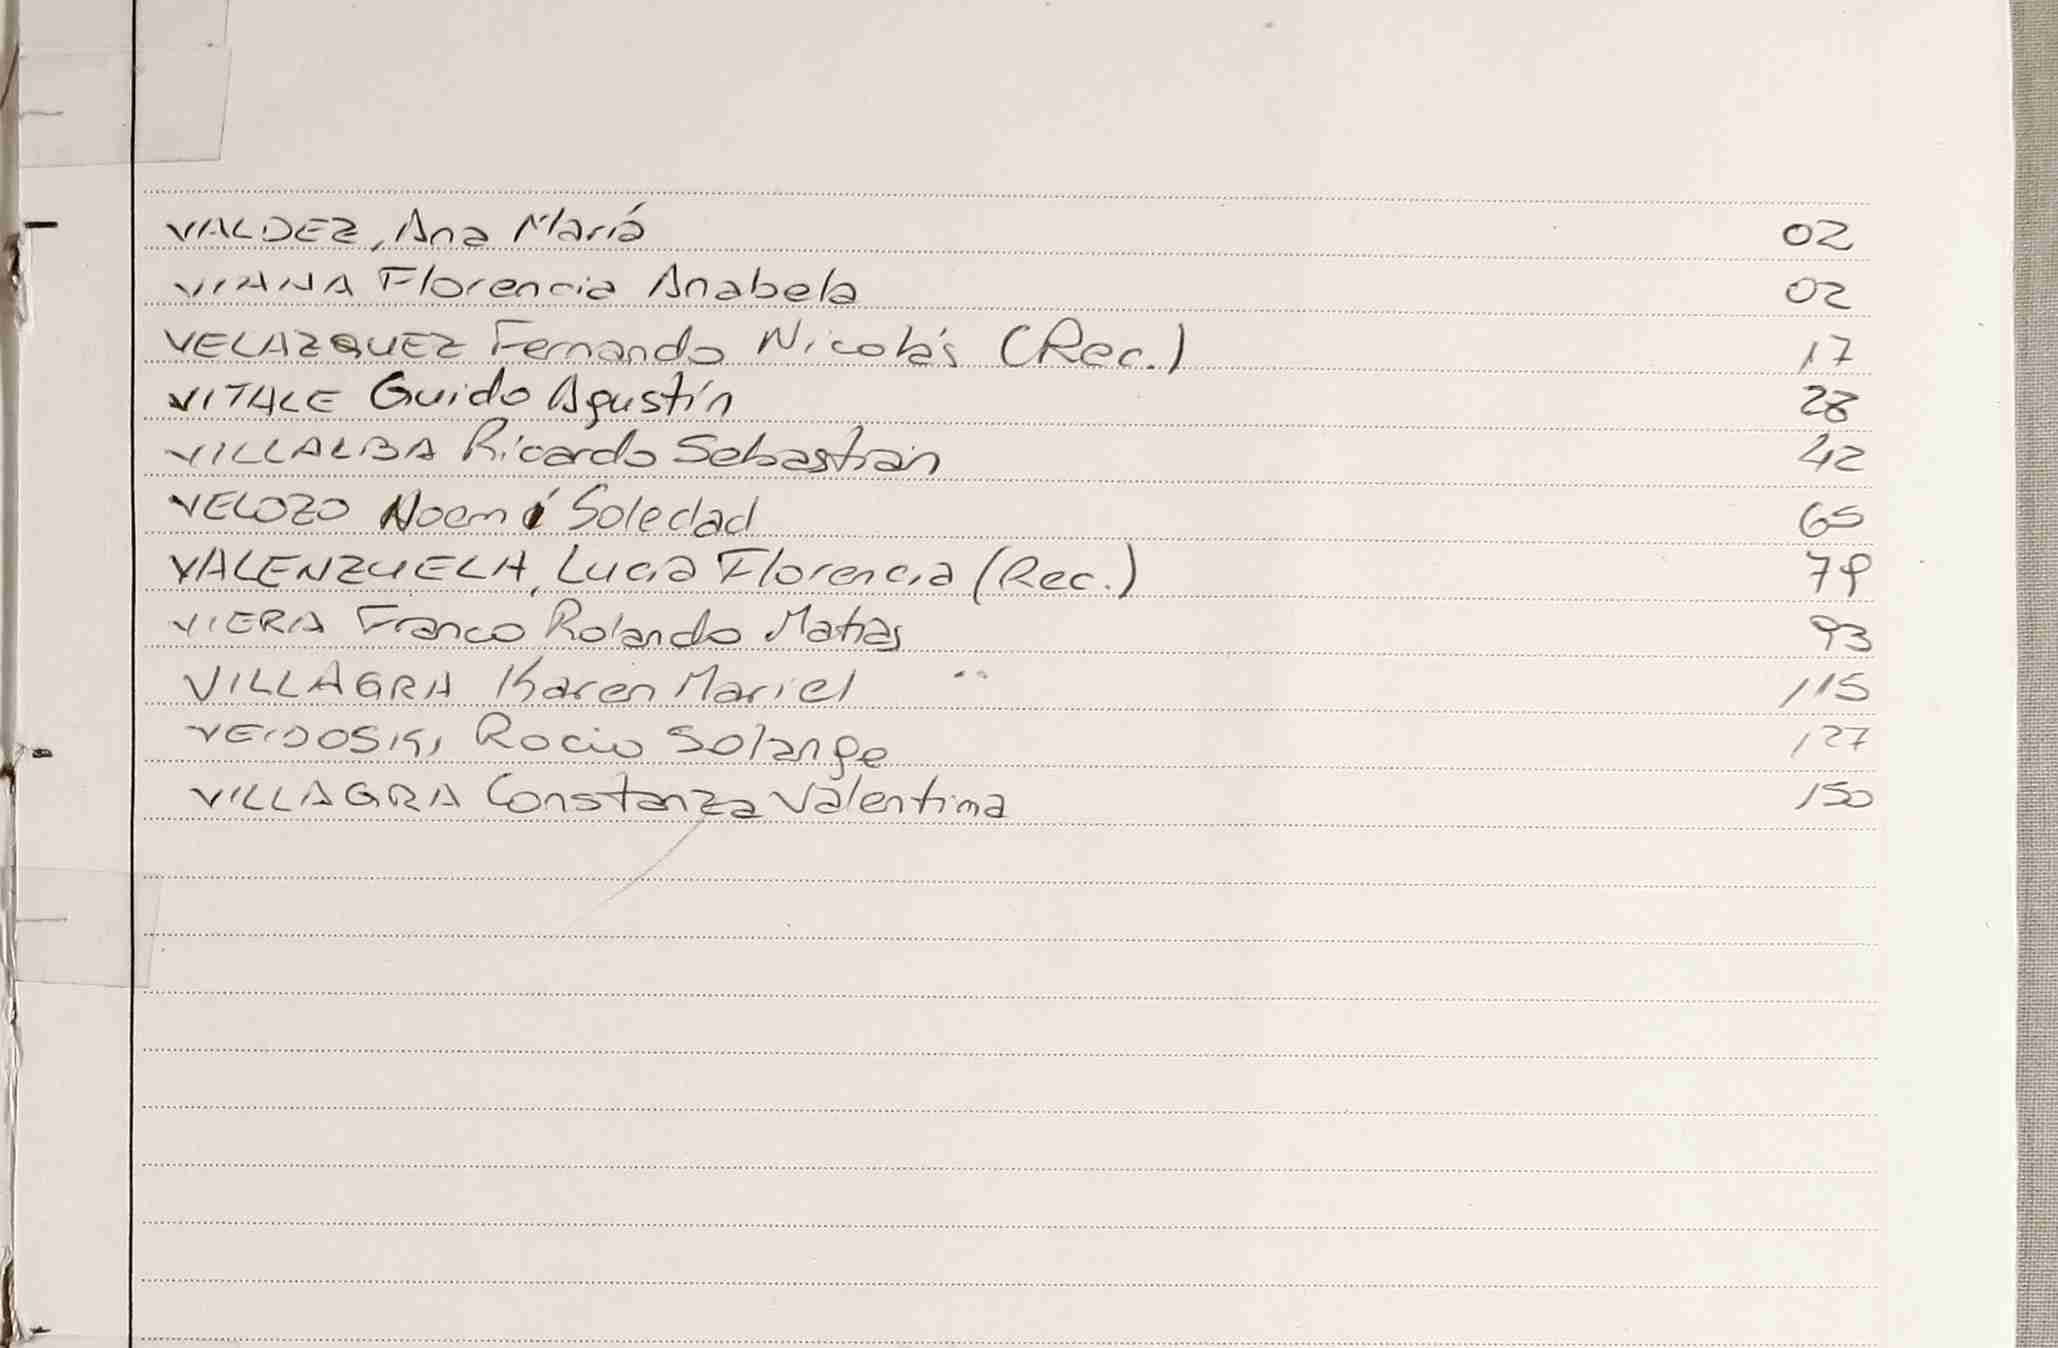 VALDEZ, Ana María 02
VIANA Florencia Anabela 02
VELAZQUEZ Fernando Nicolás (Rec.) 17
VITALE Guido Agustín 28
VILLALBA Ricardo Sebastián 42
VELOZO Noemí Soledad 65
VALENZUELA, Lucia Florencia (Rec.) 79
VIERA Franco Rolando Matias 93
VILLAGRA Karen Mariel 115
VEIDOSKI Rocio Solange 127
VILLAGRA Constanza Valentina 150